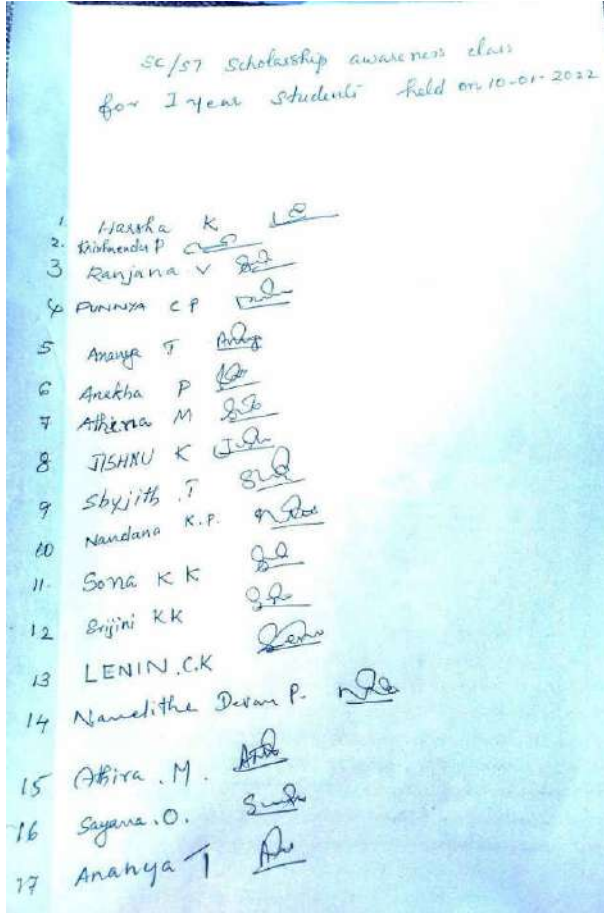 SC/ST Scholarship awareness class
for I year students held on 10-01-2022
1. Harsha K
2. Krishnendu P
3 Ranjana V
4 PUNNYA C P
5 Ananya T
6 Anekha P
7 Athena M
8 JISHNU K
9 Shyjith .T
10 Nandana K.P.
11. Sona K K
12 Srijini KK
13 LENIN .C.K
14 Devan P.
15 Athira . M .
16 Sayana . O .
17 Ananya T